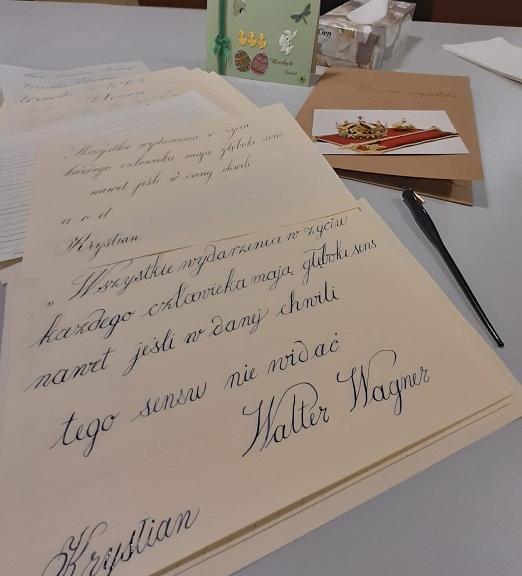 Wesołych
Świąt
Wszystkie wydarzenia w życiu
każdego człowieka mają głęboki sens
nawet jeśli w danej chwili
a o d
Krystian
„ Wszystkie wydarzenia w życiu
każdego człowieka mają głęboki sens
nawet jeśli w danej chwili
tego sensu nie widać
Walter Wagner
Krystian